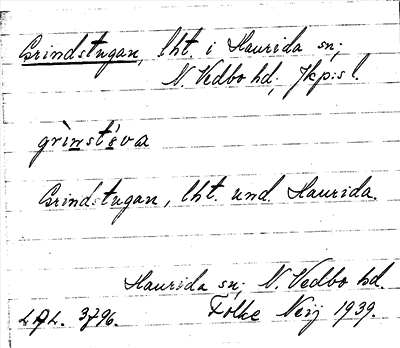 Grindstugan, lht. i Haurida sn;
N. Vedbo hd; Jkp:s l.
grìnst´ɛva
Grindstugan, lht. und. Haurida.
Haurida sn; N. Vedbo hd.
LAL. 3796. Folke Neij 1939.